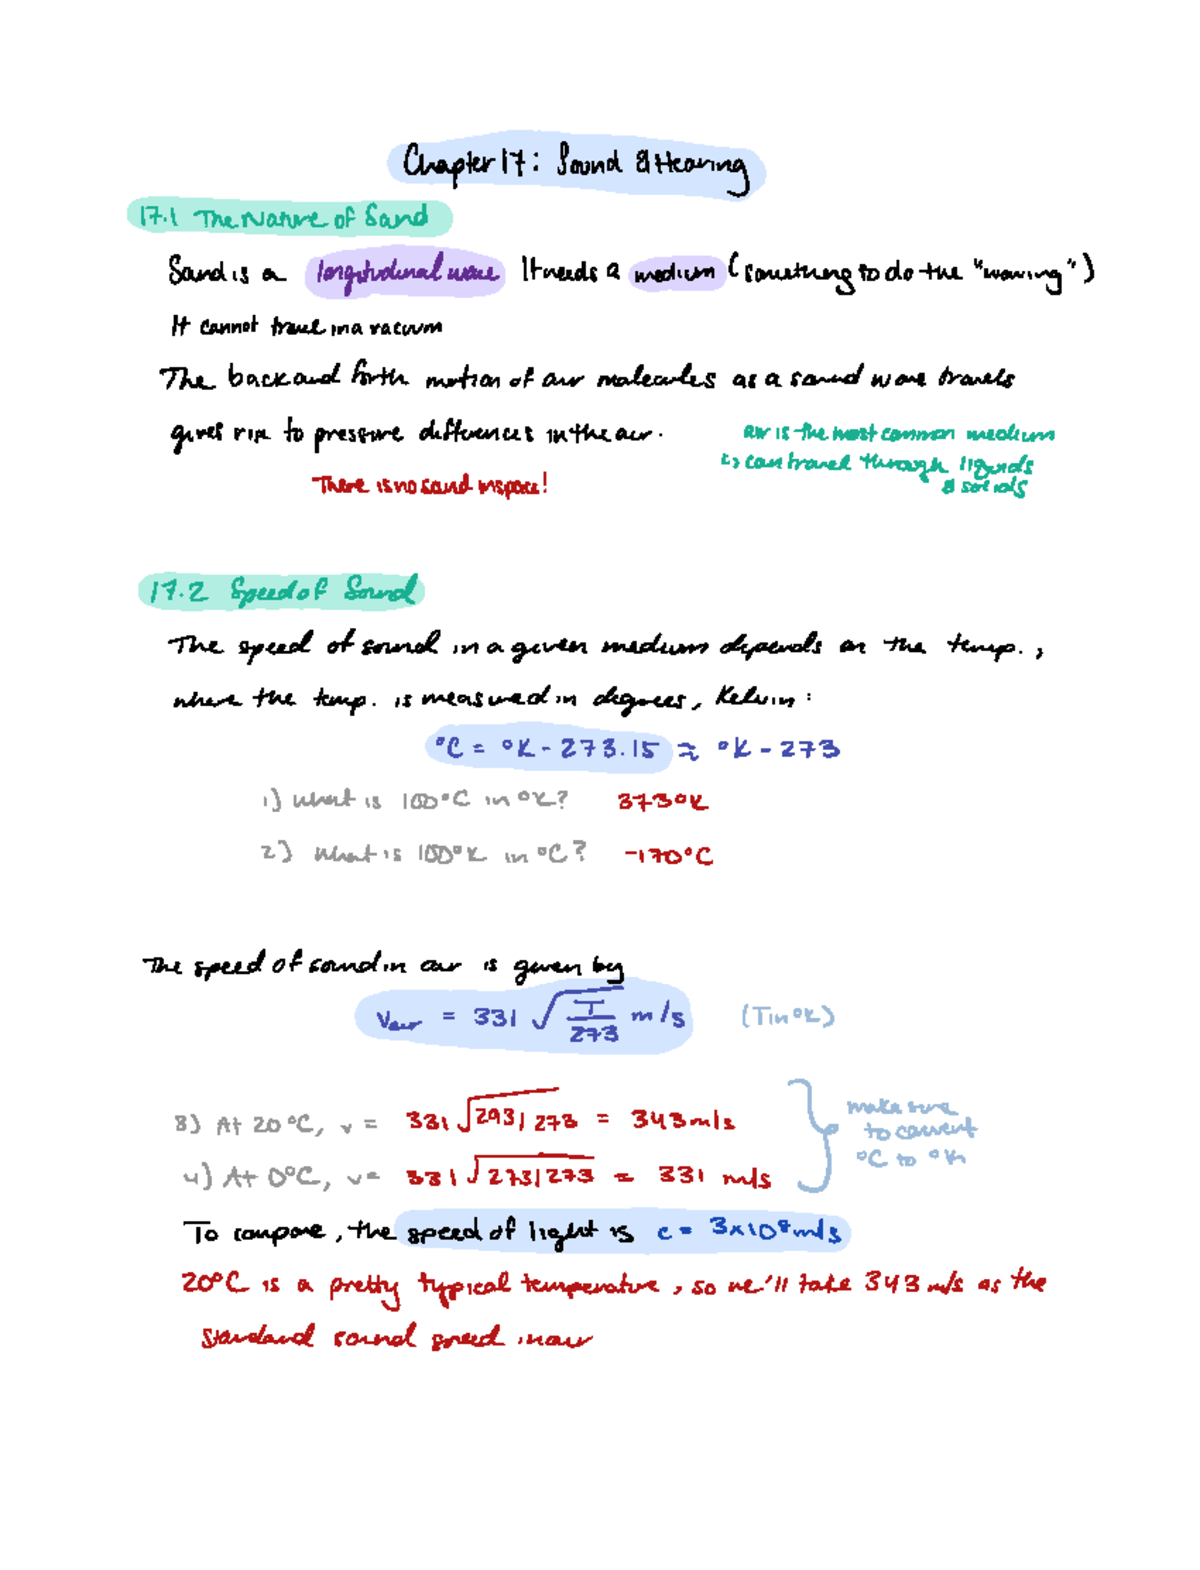 Chapter 17: Sound & Hearing
17.1 The Nature of Sound
Sound is a longitudinal wave It needs a medium (something to do the "waving")
It cannot travel in a vacuum
The back and forth motion of air molecules as a sound wave travels
gives rise to pressure differences in the air.
air is the most common medium
↳ can travel through liquids
& solids
There is no sound in space!
17.2 Speed of Sound
The speed of sound in a given medium depends on the temp.,
where the temp. is measured in degrees, Kelvin:
°C = °K - 273.15 ≈ °K - 273
1) What is 100°C in °K? 373°K
2) What is 100°K in °C? -170°C
The speed of sound in air is given by
Vair = 331 √(T/273) m/s (T in °K)
3) At 20°C, v = 331 √293/273 = 343 m/s
4) At 0°C, v = 331 √273/273 = 331 m/s
make sure
to convert
°C to °K
To compare, the speed of light is c = 3x10⁸ m/s
20°C is a pretty typical temperature, so we'll take 343 m/s as the
standard sound speed in air